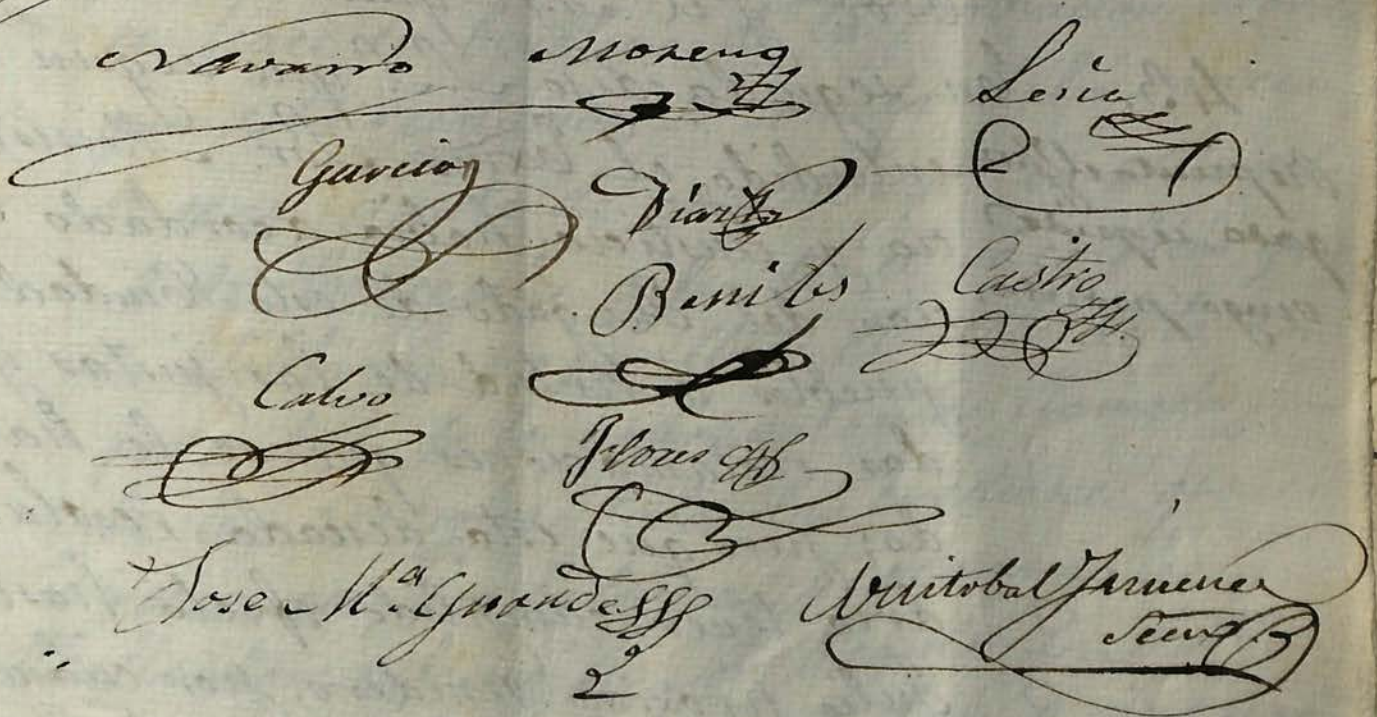 Navarro Moreno
Leria
Garcia
Diaz
Benites
Castro
Calvo
Flores
Jose Mª Grande
Cristobal Jimenez
Secreº